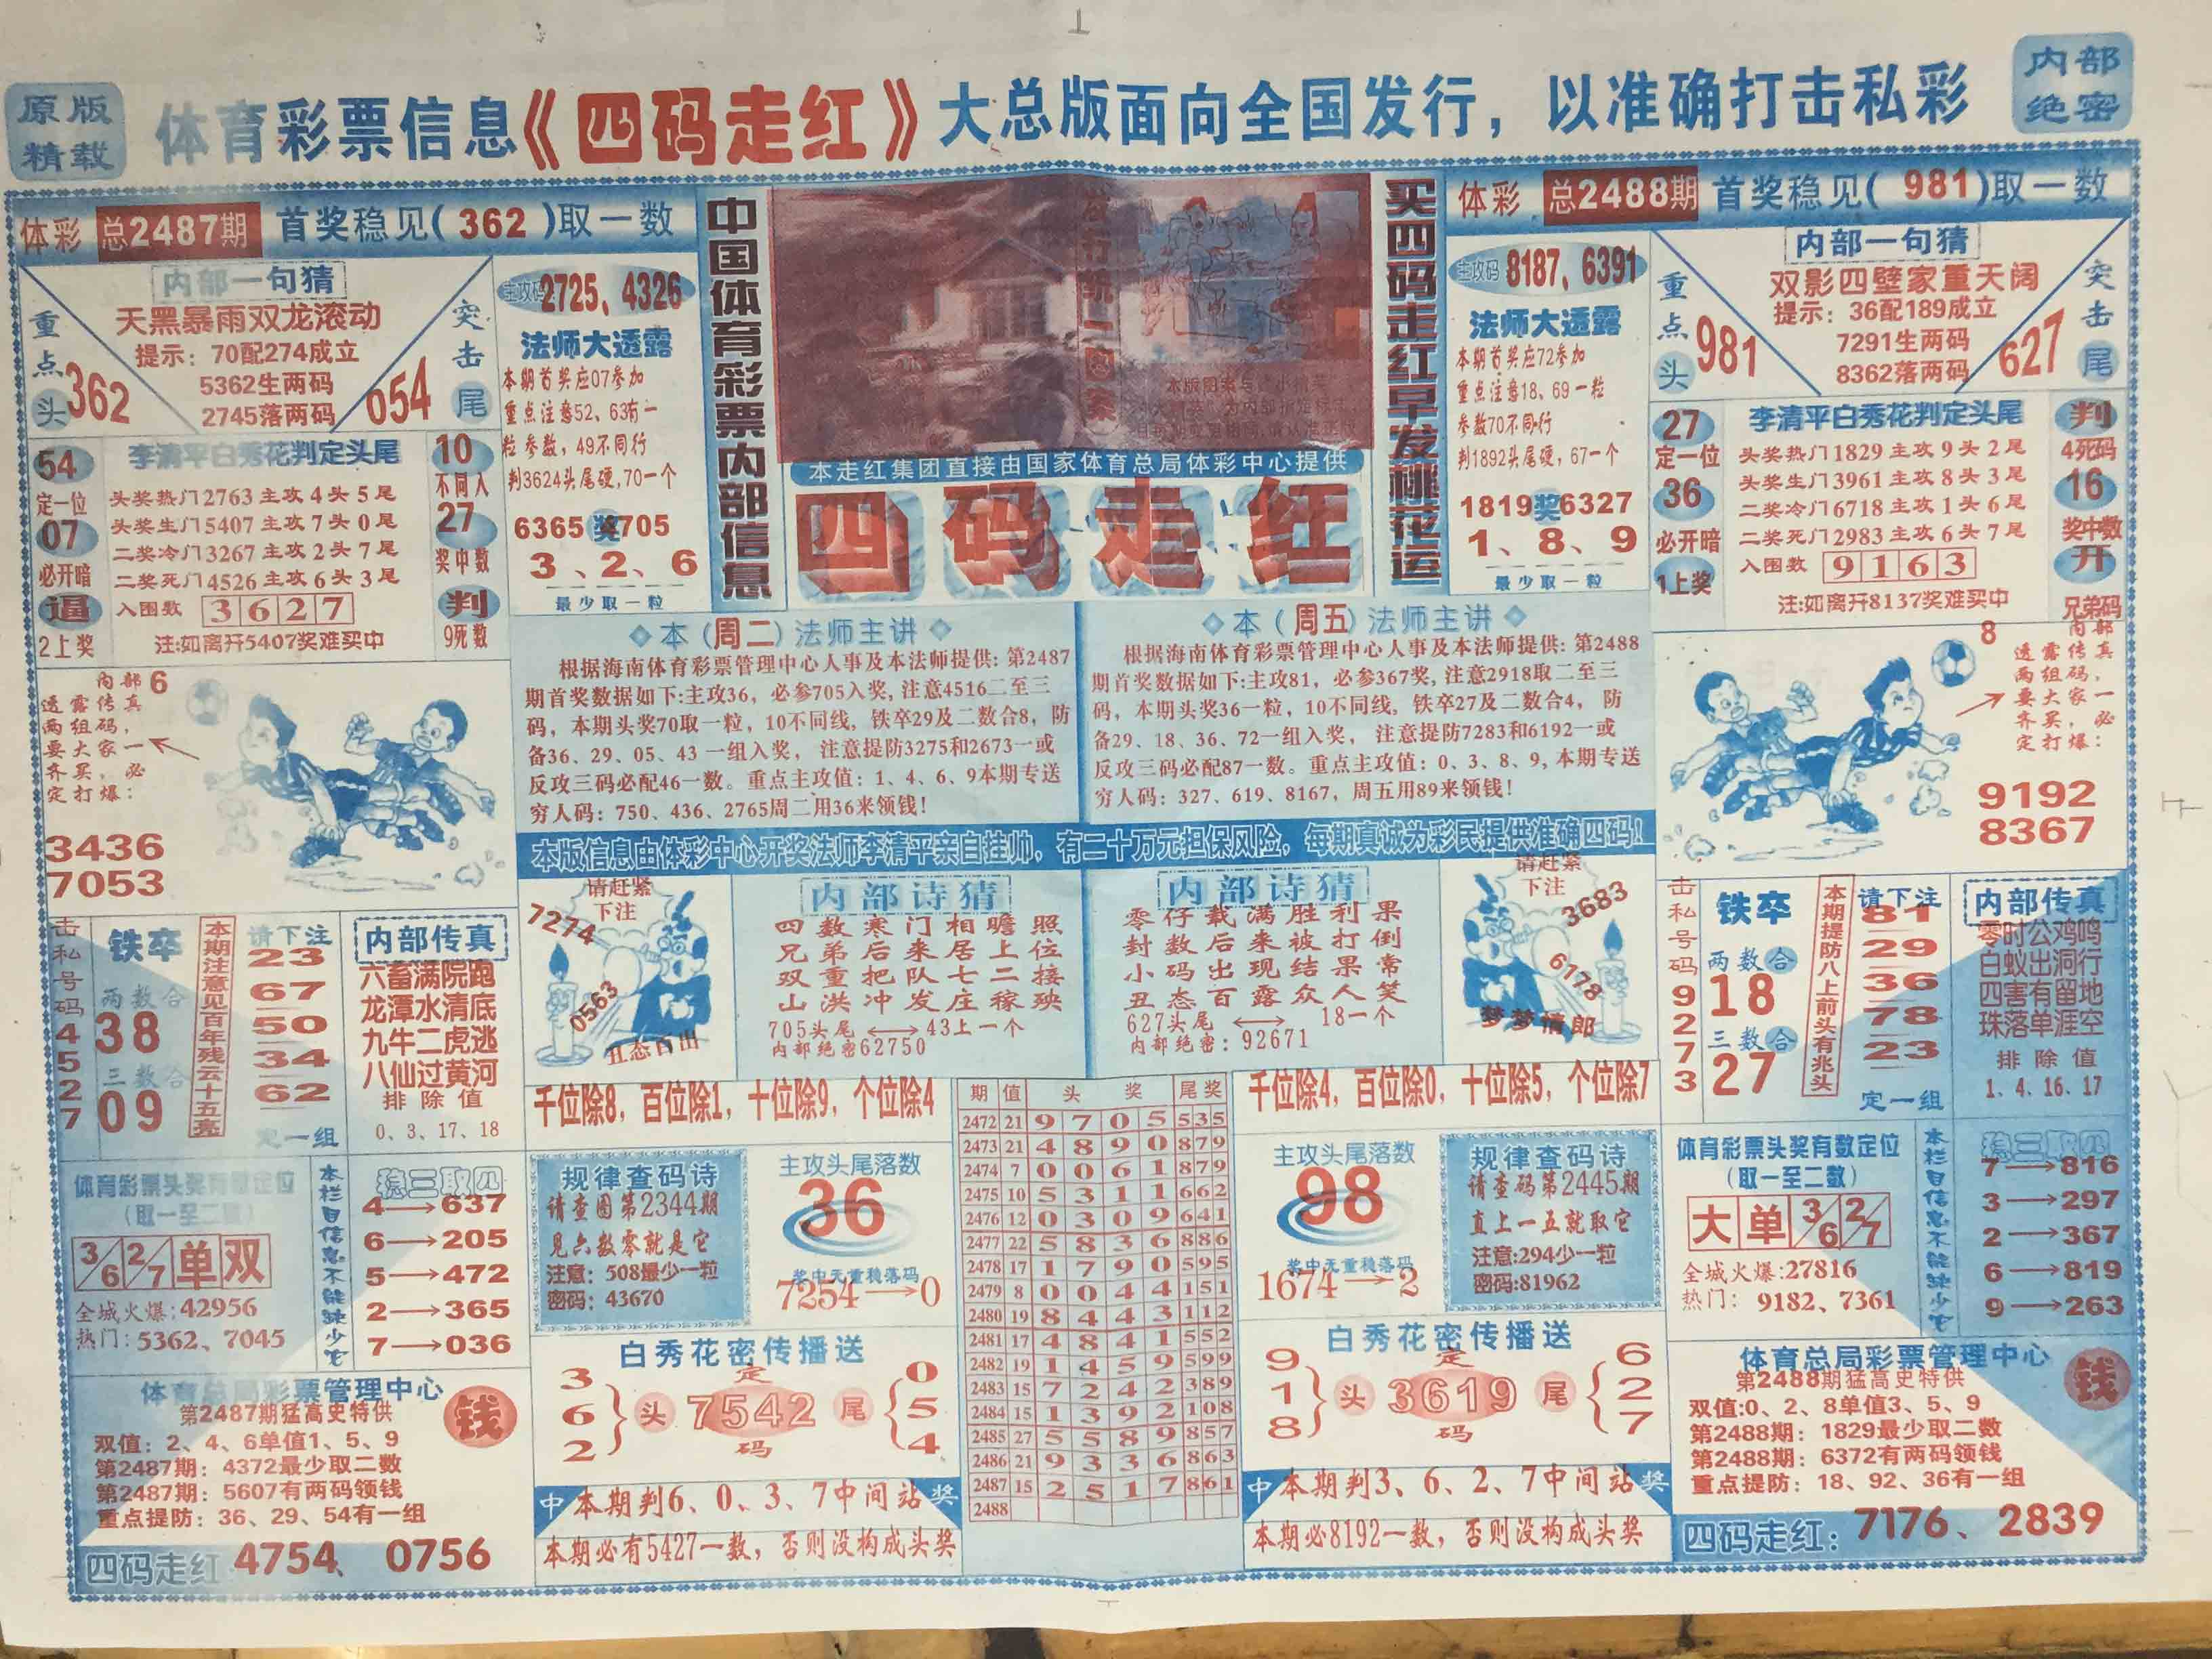 原版
精载
体育彩票信息《四码走红》大总版面向全国发行，以准确打击私彩
内部
绝密
体彩 总2487期 首奖稳见(362)取一数
内部一句猜
天黑暴雨双龙滚动
提示：70配274成立
5362生两码
2745落两码
重点头
362
突击尾
054
主攻码2725、4326
法师大透露
本期首奖应07参加
重点注意52、63有一
粒参数，49不同行
判3624头尾硬,70一个
6365奖705
3、2、6
最少取一粒
54
定一位
07
必开暗
逼
2上奖
李清平白秀花判定头尾
头奖热门2763主攻4头5尾
头奖生门5407主攻7头0尾
二奖冷门3267主攻2头7尾
二奖死门4526主攻6头3尾
入围数 3627
注:如离开5407奖难买中
10
不同入
27
奖中数
判
9死数
中国体育彩票内部信息
本走红集团直接由国家体育总局体彩中心提供
四码走红
买四码走红早发桃花运
体彩 总2488期 首奖稳见(981)取一数
主攻码8187、6391
法师大透露
本期首奖应72参加
重点注意18、69一粒
参数70不同行
判1892头尾硬，67一个
1819奖6327
1、8、9
最少取一粒
内部一句猜
双影四壁家重天阔
提示：36配189成立
7291生两码
8362落两码
重点头
981
突击尾
627
27
定一位
36
必开暗
1上奖
李清平白秀花判定头尾
头奖热门1829主攻9头2尾
头奖生门3961主攻8头3尾
二奖冷门6718主攻1头6尾
二奖死门2983主攻6头7尾
入围数 9163
注:如离开8137奖难买中
判
4死码
16
奖中数
开
兄弟码
内部6
透露传真
两组码，
要大家一
齐买，必
定打爆：
3436
7053
本(周二)法师主讲
根据海南体育彩票管理中心人事及本法师提供：第2487
期首奖数据如下:主攻36，必参705入奖,注意4516二至三
码，本期头奖70取一粒，10不同线，铁卒29及二数合8，防
备36、29、05、43一组入奖，注意提防3275和2673一或
反攻三码必配46一数。重点主攻值：1、4、6、9本期专送
穷人码：750、436、2765周二用36来领钱！
本(周五)法师主讲
根据海南体育彩票管理中心人事及本法师提供：第2488
期首奖数据如下:主攻81，必参367奖,注意2918取二至三
码，本期头奖36一粒，10不同线，铁卒27及二数合4，防
备29、18、36、72一组入奖，注意提防7283和6192一或
反攻三码必配87一数。重点主攻值：0、3、8、9,本期专送
穷人码：327、619、8167，周五用89来领钱！
8
内部
透露传真
两组码，
要大家一
齐买，必
定打爆：
9192
8367
本版信息由体彩中心开奖法师李清平亲自挂帅，有二十万元担保风险，每期真诚为彩民提供准确四码！
击私号码4527
铁卒
两数合
38
三数合
09
本期注意见百年残云十五亮
请下注
23
67
50
34
62
定一组
内部传真
六畜满院跑
龙潭水清底
九牛二虎逃
八仙过黄河
排除值
0、3、17、18
请赶紧
下注
7274
0563
丑态百出
内部诗猜
四数寒门相瞻照
兄弟后来居上位
双重把队七二接
山洪冲发庄稼殃
705头尾⟷43上一个
内部绝密62750
内部诗猜
零仔载满胜利果
封数后来被打倒
小码出现结果常
丑态百露众人笑
627头尾⟷18一个
内部绝密：92671
请赶紧
下注
3683
6178
梦梦情郎
击私号码9273
铁卒
两数合
18
三数合
27
本期提防八上前头有兆头
请下注
81
29
36
78
23
定一组
内部传真
零时公鸡鸣
白蚁出洞行
四害有留地
珠落单涯空
排除值
1、4、16、17
千位除8，百位除1，十位除9，个位除4
期 值 头奖 尾奖
2472 21 9705 535
2473 21 4890 879
2474 7 0061 879
2475 10 5311 662
2476 12 0309 641
2477 22 5836 886
2478 17 1790 595
2479 8 0044 151
2480 19 8443 112
2481 17 4841 552
2482 19 1459 599
2483 15 7242 389
2484 15 1392 108
2485 27 5589 857
2486 21 9336 863
2487 15 2517 861
2488
千位除4，百位除0，十位除5，个位除7
体育彩票头奖有数定位
(取一至二数)
3/6 2/7 单 双
全城火爆:42956
热门：5362、7045
本栏目信息不能缺少它
稳三取四
4→637
6→205
5→472
2→365
7→036
规律查码诗
请查图第2344期
见六数零就是它
注意：508最少一粒
密码：43670
主攻头尾落数
36
奖中无重稳落码
7254→0
主攻头尾落数
98
奖中无重稳落码
1674→2
规律查码诗
请查码第2445期
直上一五就取它
注意:294少一粒
密码:81962
体育彩票头奖有数定位
(取一至二数)
大 单 3/6 2/7
全城火爆:27816
热门：9182、7361
本栏目信息不能缺少它
稳三取四
7→816
3→297
2→367
6→819
9→263
体育总局彩票管理中心
第2487期猛高史特供
钱
双值：2、4、6单值1、5、9
第2487期：4372最少取二数
第2487期：5607有两码领钱
重点提防：36、29、54有一组
四码走红 4754、0756
白秀花密传播送
362
头
定
7542
码
尾
054
中 本期判6、0、3、7中间站 奖
本期必有5427一数，否则没构成头奖
白秀花密传播送
918
头
定
3619
码
尾
627
中 本期判3、6、2、7中间站 奖
本期必8192一数，否则没构成头奖
体育总局彩票管理中心
第2488期猛高史特供
钱
双值:0、2、8单值3、5、9
第2488期：1829最少取二数
第2488期：6372有两码领钱
重点提防：18、92、36有一组
四码走红：7176、2839